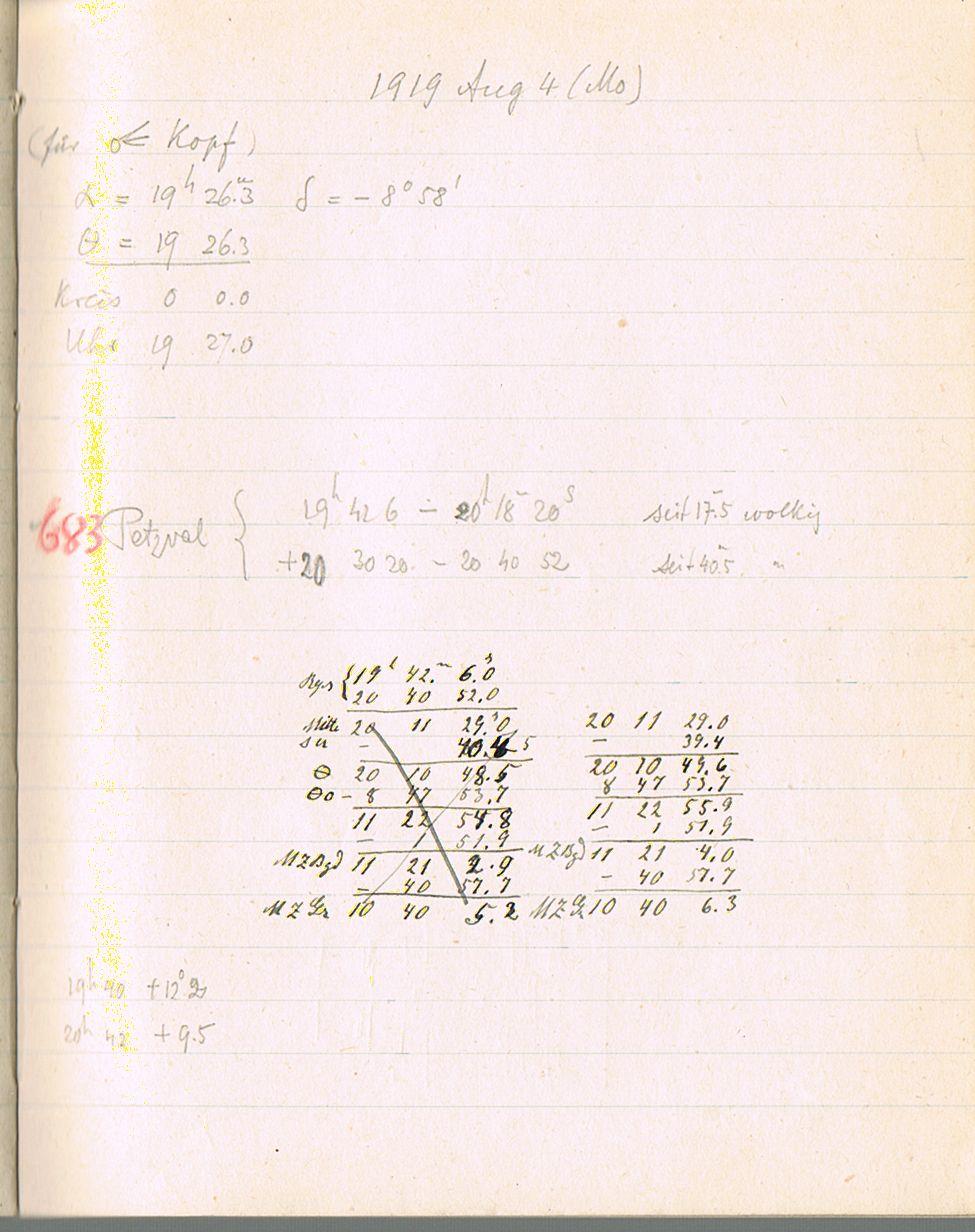 1919 Aug 4 (Mo)
(für Kopf)
α = 19h 26m.3 δ = - 8° 58'
θ = 19 26.3
Kreis 0 0.0
Uhr 19 27.0
683 Petzval { 19h 42 6 - 20h 18m 20s seit 17m.5 wolkig
+20 30 20. - 20 40 52 seit 40m.5 "
{19h 42m 6s.0
20 40 52.0
Mitte 20 11 29s.0 20 11 29.0
- 40. 5 - 39.4
θ 20 10 48.5 20 10 49.6
θ0 - 8 47 53.7 8 47 53.7
11 22 54.8 11 22 55.9
- 1 51.9 - 1 51.9
MZBgd 11 21 2.9 MZBgd 11 21 4.0
- 40 57.7 - 40 57.7
MZGr 10 40 5.2 MZGr 10 40 6.3
19h 40 +12°2
20h 42 + 9.5